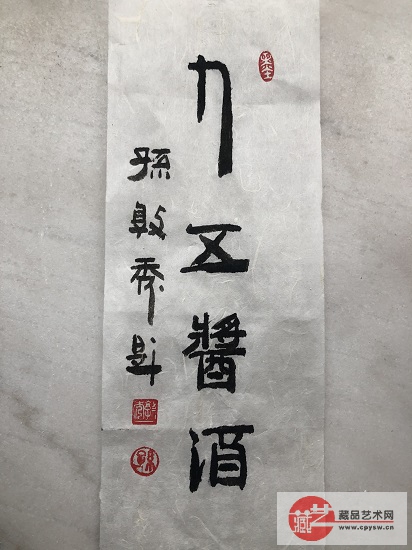 九五醬酒
孫敦秀題
藏艺
藏品艺术网
www.cpysw.cn